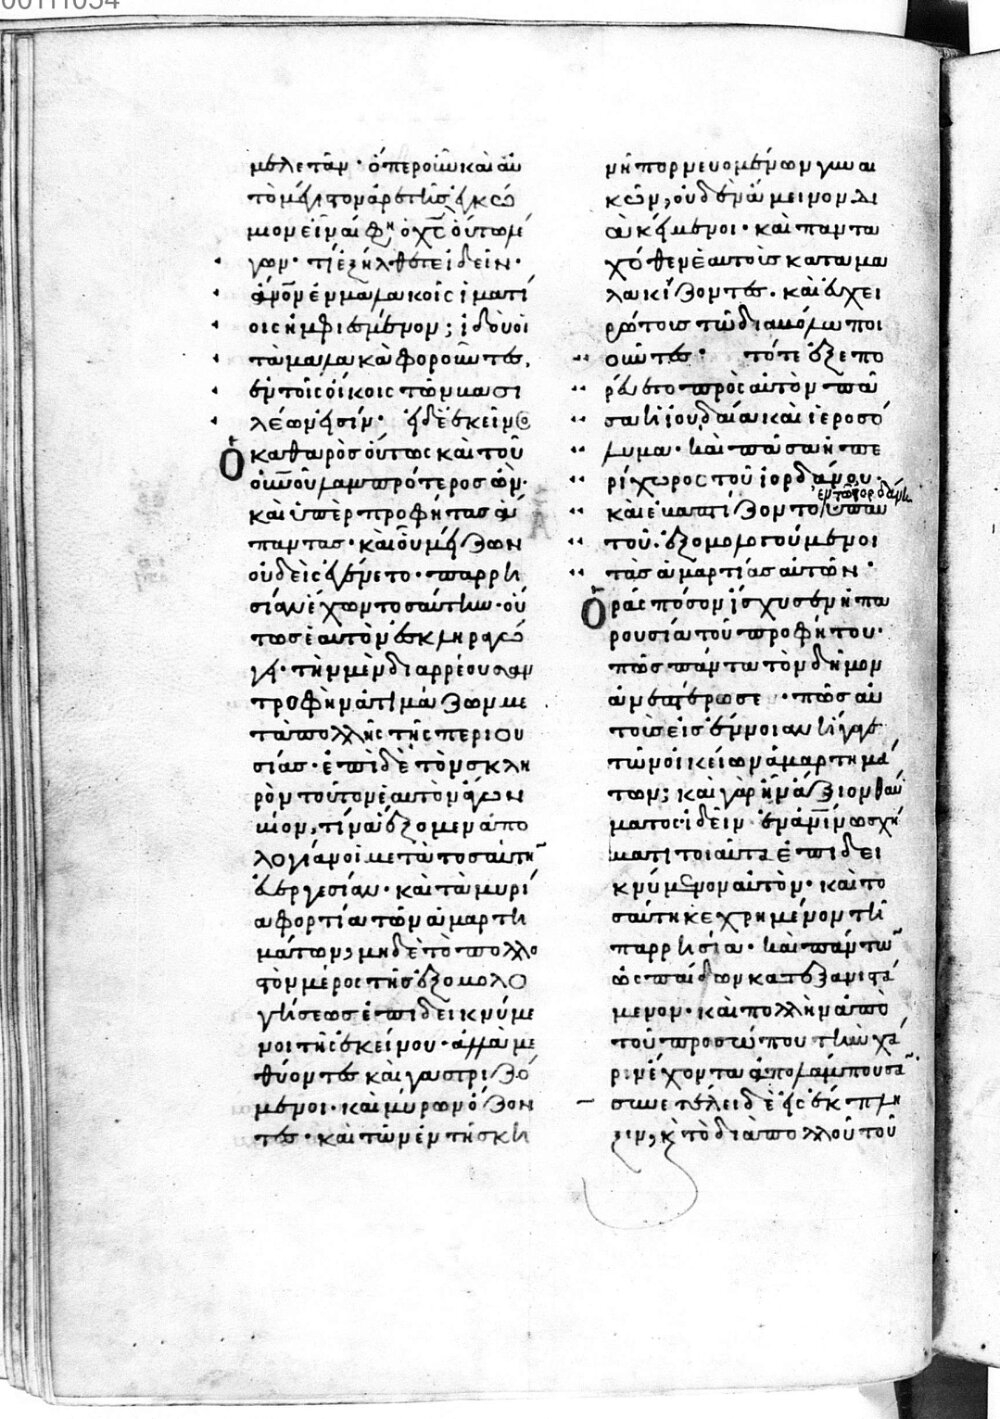 μελετᾶν· ὅπερ οὖν καὶ αὐ
τὸ μέγιστον ἀρετῆς ἐγκώ
μιον εἶναί φη ὁ χς οὕτω λέ
γων· τί ἐξήλθετε ἰδεῖν·
ἄνον ἐν μαλακοῖς ἱματί
οις ἠμφιεσμένον; ἰδοὺ οἱ
τὰ μαλακὰ φοροῦντες,
ἐν τοῖς οἴκοις τῶν βασι
λέων εἰσίν· εἰ δὲ ἐκεῖνος
ὁ καθαρὸς οὕτως καὶ τοῦ
οὐνοῦ λαμπρότερος ὢν·
καὶ ὑπὲρ προφήτας ἅ
παντας· καὶ οὗ μείζων
οὐδεὶς ἐγένετο· παρρη
σίαν ἔχων τοσαύτην· οὕ
τως ἑαυτὸν ἐσκληραγώ
γει· τὴν μὲν διαρρέουσαν
τροφὴν ἀτιμάζων με
τὰ πολλῆς τῆς περιου
σίας· ἐπὶ δὲ τὸν σκλη
ρὸν τοῦτον ἑαυτὸν ἄγων
βίον, τίνα ἕξομεν ἀπο
λογίαν οἱ μετὰ τοσαύτην
εὐεργεσίαν· καὶ τὰ μυρί
α φορτία τῶν ἁμαρτη
μάτων; μηδὲ τὸ πολλο
στὸν μέρος τῆς ἐξομολο
γήσεως ἐπιδεικνύμε
νοι τῆς ἐκείνου· ἀλλὰ με
θύοντες καὶ γαστριζό
μενοι· καὶ μύρων ὄζον
τες· καὶ τῶν ἐν τῇ σκη
νῇ πορνευομένων γυναι
κῶν, οὐδὲν ἄμεινον δι
ακείμενοι· καὶ πάντα
χόθεν ἑαυτοὺς καταμα
λακίζοντες· καὶ εὐχει
ρώτους τῷ διαβόλῳ ποι
οῦντες· τότε ἐξεπο
ρεύετο πρὸς αὐτὸν πᾶ
σα ἡ ἰουδαία καὶ ἱεροσό
λυμα· καὶ πᾶσα ἡ πε
ρίχωρος τοῦ ἰορδάνου·
ἐν τῷ ἰορδάνῃ
καὶ ἐβαπτίζοντο ὑπ αὐ
τοῦ· ἐξομολογούμενοι
τὰς ἁμαρτίας αὐτῶν·
ὁρᾷς πόσον ἴσχυσεν ἡ πα
ρουσία τοῦ προφήτου·
πῶς πάντα τὸν δῆμον
ἀνεπτέρωσε· πῶς αὐ
τοὺς εἰς ἔννοιαν ἤγαγε
τῶν οἰκείων ἁμαρτημά
των; καὶ γὰρ ἦν ἄξιον θαύ
ματος ἰδεῖν ἐν ἀνίνω σχή
ματι τοιαῦτα ἐπιδει
κνύμενον αὐτὸν· καὶ το
σαύτῃ κεχρημένον τῇ
παρρησίᾳ· καὶ πάντων
ὡς παίδων κατεξανιστά
μενον· καὶ πολλὴν ἀπὸ
τοῦ προσώπου τὴν χά
ριν ἔχοντα ἀπολάμπουσαν·
συνετέλει δὲ εἰς ἔκπλη
ξιν, κ τὸ διὰ πολλοῦ τοῦ